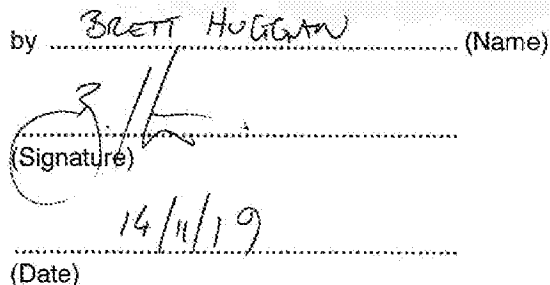 by BRETT HUGGAN (Name)
(Signature)
14/11/19
(Date)